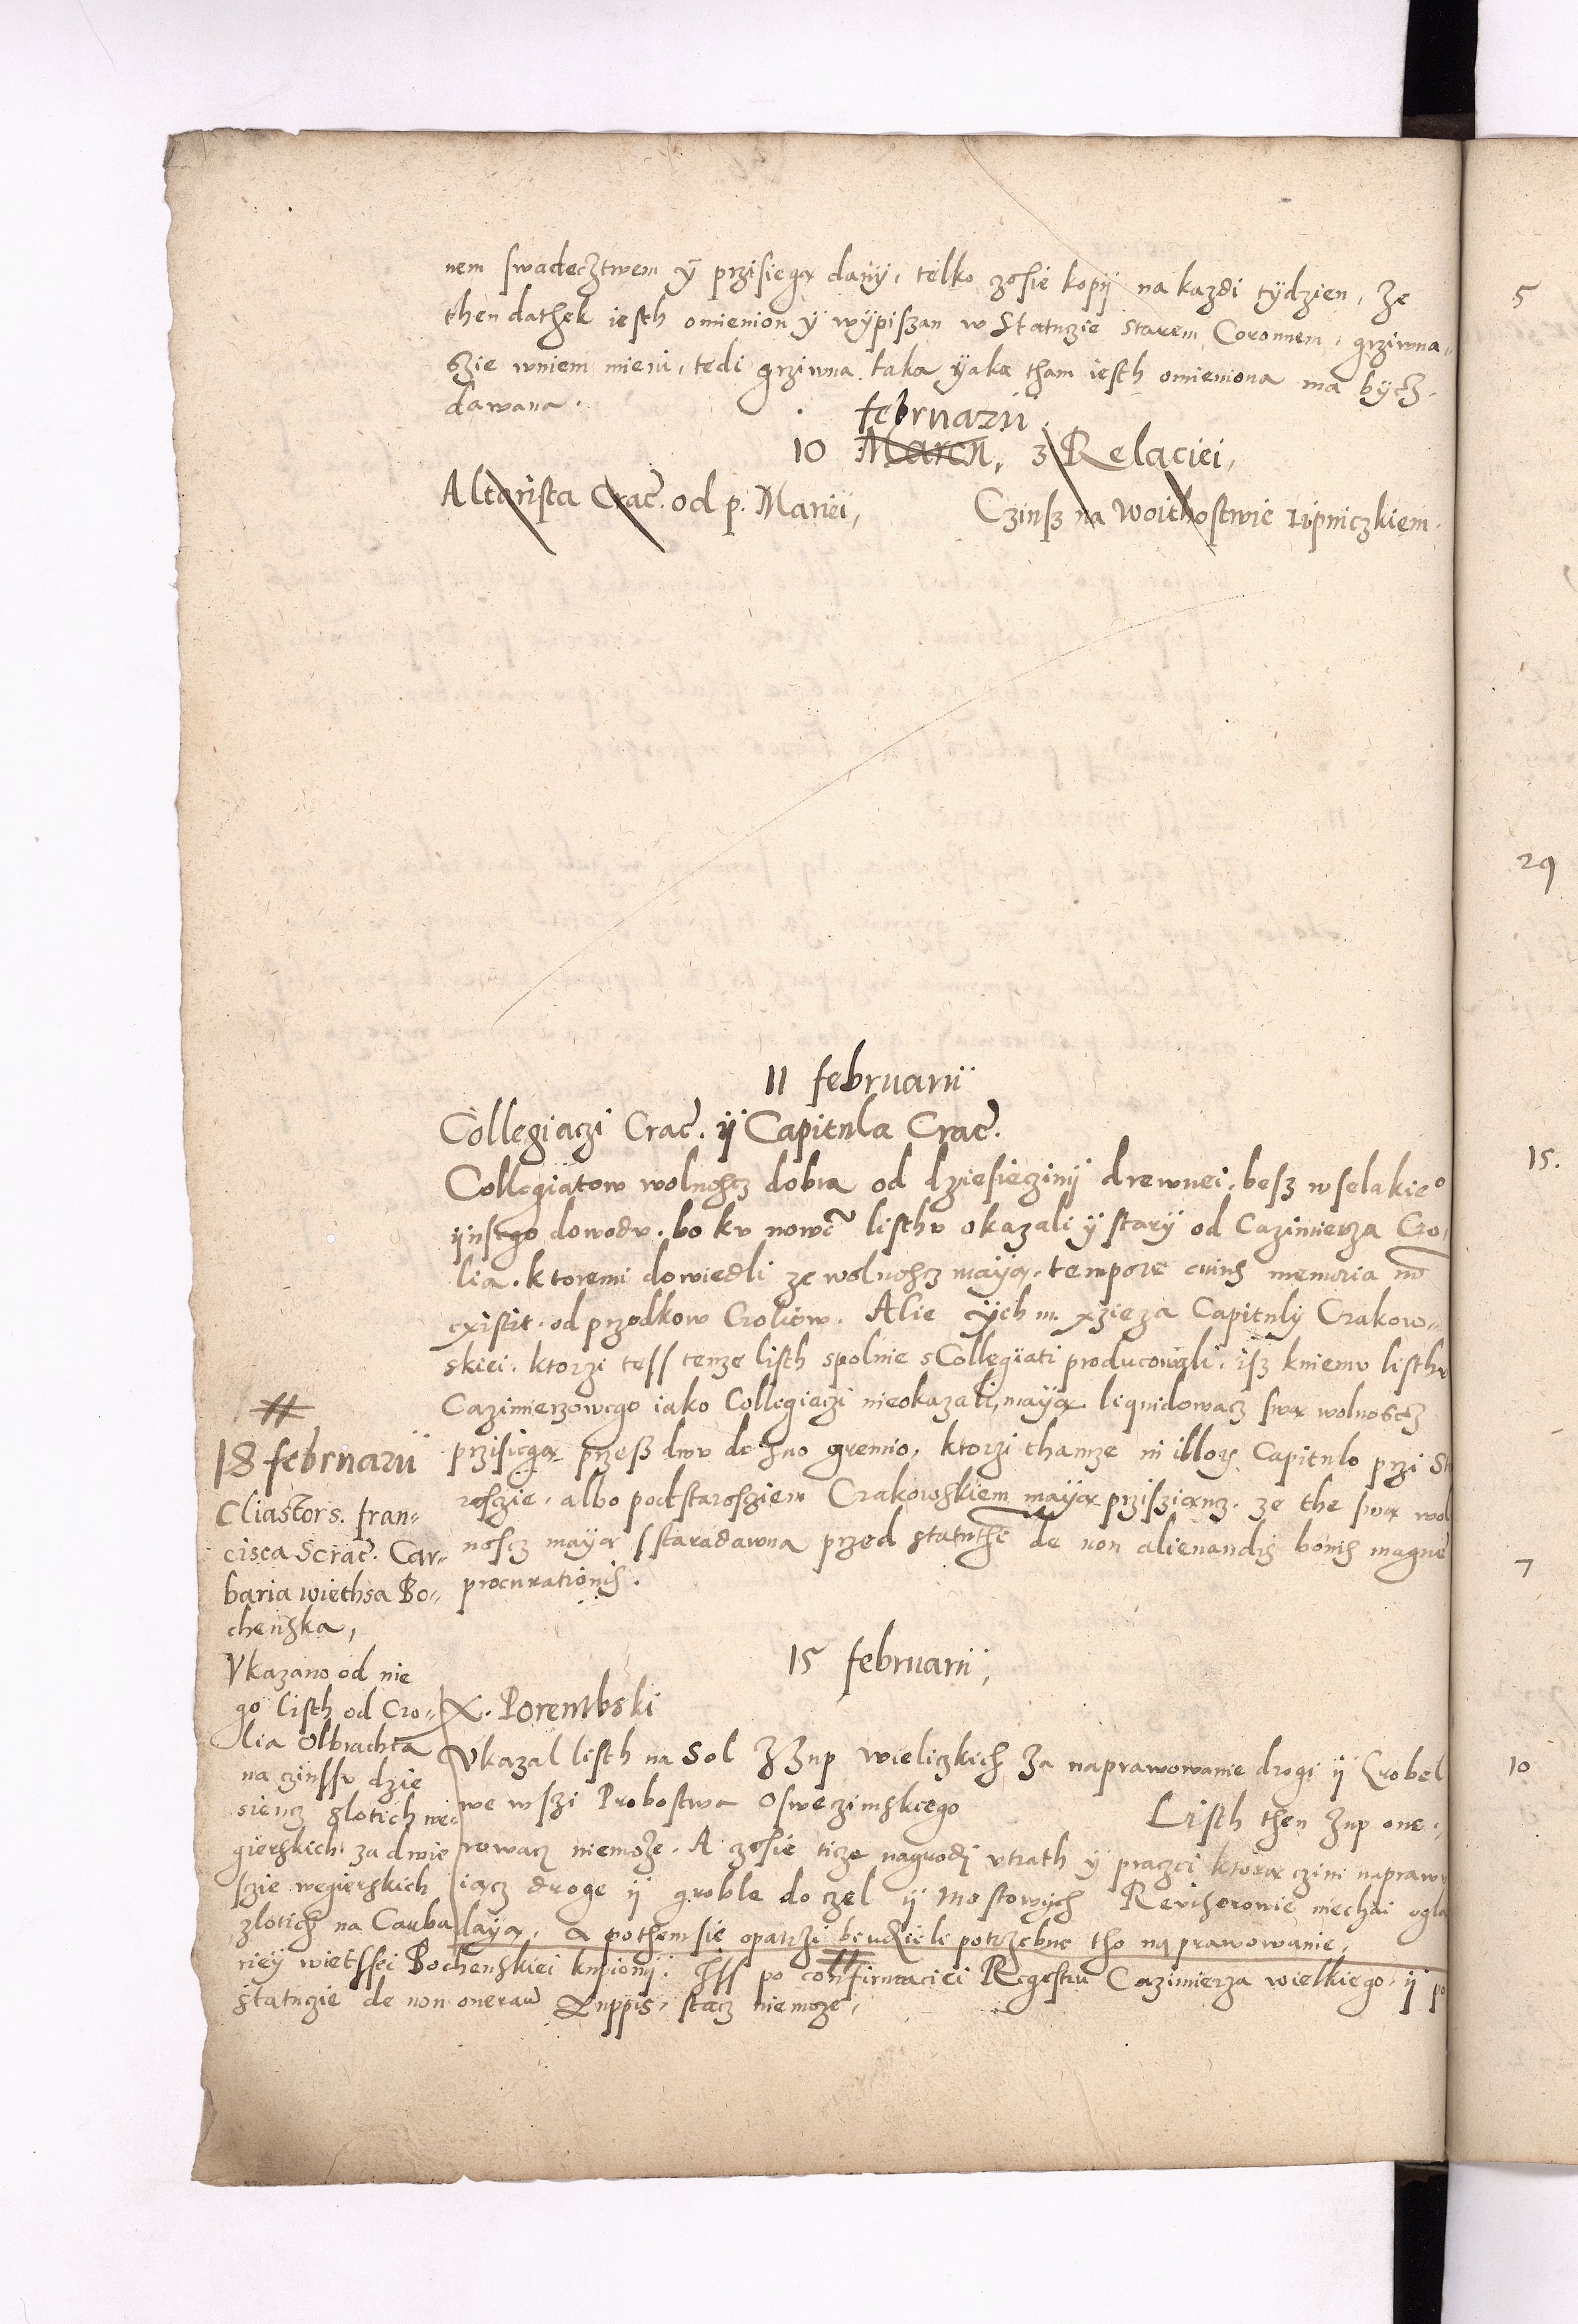 nem swadecztwem ÿ przisiegą danÿ, telko zosie kopÿ na kazdi tÿdzien, że
then dathek iesth omienion ÿ wÿpiszan w Statuzie starem Coronnem, grziwna,
szie wniem mieni, tedi grziwna taka ÿaka tham iesth omieniona ma bÿcz
dawana.
februarii
10 Marcii, z Relaciei,
Altarista Crac. od p. Mariei,
Czinsz na Woithostwie ripniczkiem.
11 februarii
Collegiaczi Crac. ÿ Capitula Crac.
Collegiatow wolnoscz dobra od dziesiecinÿ drewnei, besz wselakieo
ÿnsego dowodu. bo ku nowe listhu okazali ÿ starÿ od Cazimierza Cro,
lia. ktoremi dowiedli ze wolnoscz maÿą, tempore cuius memoria no
existit. od przodkow Croliow. Alie ÿch m. xzieza Capitulÿ Crakow,,
skiei. ktorzi tess tenze listh spolnie s Collegiati producowali, isz kniemu listhu
Cazimierzowego iako Collegiaczi nieokazali, maÿą liquidowacz swą wolnoscz
przisiegą przesz dwu de suo gremio, ktorzi thamze in illor Capitulo przi St
rosczie, albo podstarosziem Crakowskiem maÿą przisziancz. ze the swą wol
noscz maÿą sstaradawna przed statuthe de non alienandis bonis magne
procurationis.
18 februarii
Cliastor s. fran,,
cisca s Crac. Car,,
baria wiethsa Bo,,
chenska,
Vkazano od nie
go listh od Cro,,
lia Olbrachta
na czinssu dzie
siencz zlotich we,,
gierskich. za dwie
szie wegierskich
zlotich na Carba
riey wietssei Bochenskiei kupionÿ. Iss po confirmaciei Regestru Cazimierza wielkiego, ÿ po
statuzie de non oneran Zuppis, stacz niemoze,
15 februarii,
X. Porembski
Vkazal listh na Sol z Zup wieliczkich za naprawowanie drogi ÿ Grobel
we wszi Probostwa Osweczimskiego
Listh then Zup one,
rowacz niemoże. A zosie ticze nagrodi vtrath ÿ praczei ktorą czini naprawu
iącz droge ÿ groble do czel ÿ mostowÿch Revisorowie niechai ogla
daÿą, a pothem sie opatrzi bendzieli potrzebne tho naprawowanie,
5
29
15.
7
10